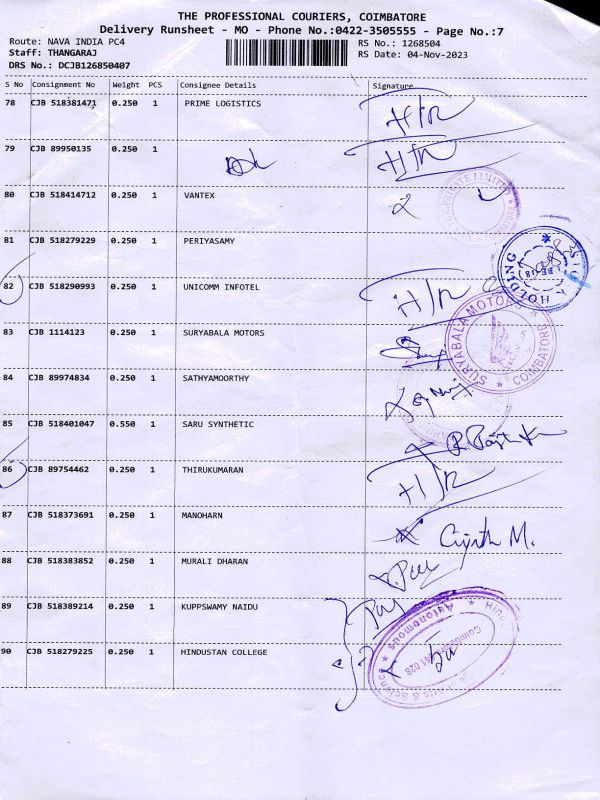 THE PROFESSIONAL COURIERS, COIMBATORE
Delivery Runsheet - MO - Phone No.:0422-3505555 - Page No.:7
Route: NAVA INDIA PC4 RS No.: 1268504
Staff: THANGARAJ RS Date: 04-Nov-2023
DRS No.: DCJB126850407
S No Consignment No Weight PCS Consignee Details Signature
78 CJB 518381471 0.250 1 PRIME LOGISTICS H/R
79 CJB 89950135 0.250 1 H/R
80 CJB 518414712 0.250 1 VANTEX
PRIVATE LIMITED
81 CJB 518279229 0.250 1 PERIYASAMY
HOLDING
82 CJB 518290993 0.250 1 UNICOMM INFOTEL H/R
83 CJB 1114123 0.250 1 SURYABALA MOTORS
SURYABALA MOTORS COIMBATORE
84 CJB 89974834 0.250 1 SATHYAMOORTHY
85 CJB 518401047 0.550 1 SARU SYNTHETIC
86 CJB 89754462 0.250 1 THIRUKUMARAN H/R
87 CJB 518373691 0.250 1 MANOHARN
88 CJB 518383852 0.250 1 MURALI DHARAN
89 CJB 518389214 0.250 1 KUPPSWAMY NAIDU
90 CJB 518279225 0.250 1 HINDUSTAN COLLEGE
Autonomous